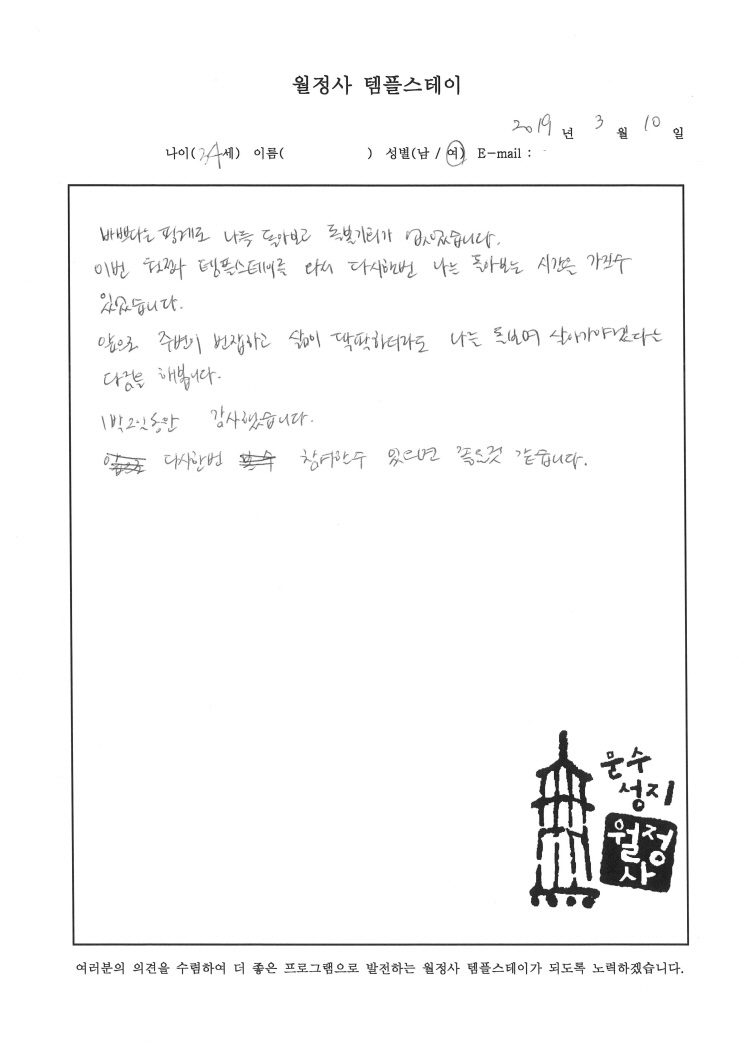 월정사 템플스테이
2019 년 3 월 10 일
나이(34세) 이름( ) 성별(남 / 여) E-mail :
바쁘다는 핑계로 나를 돌아보고 돌볼기회가 없었습니다.
이번 템플스테이를 와서 다시한번 나를 돌아보는 시간을 가질수
있었습니다.
앞으로 주변이 번잡하고 삶이 팍팍하더라도 나를 돌보며 살아가야겠다는
다짐을 해봅니다.
1박2일동안 감사했습니다.
앞으로 다시한번 참여할수 있으면 좋을것 같습니다.
문수
성지
월정
사
여러분의 의견을 수렴하여 더 좋은 프로그램으로 발전하는 월정사 템플스테이가 되도록 노력하겠습니다.